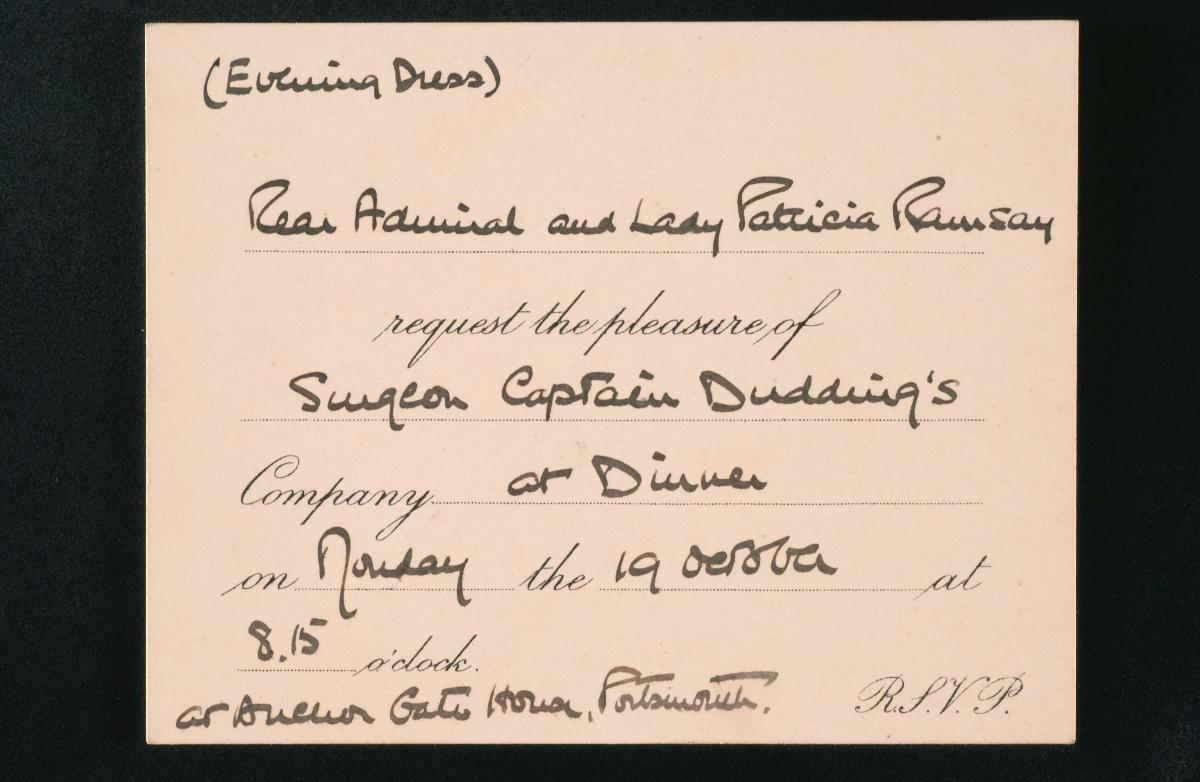 (Evening Dress)
Rear Admiral and Lady Patricia Ramsay
request the pleasure of
Surgeon Captain Dudding's
Company at Dinner
on Monday the 19 October at
8.15 o'clock.
at Anchor Gate House, Portsmouth.
R.S.V.P.